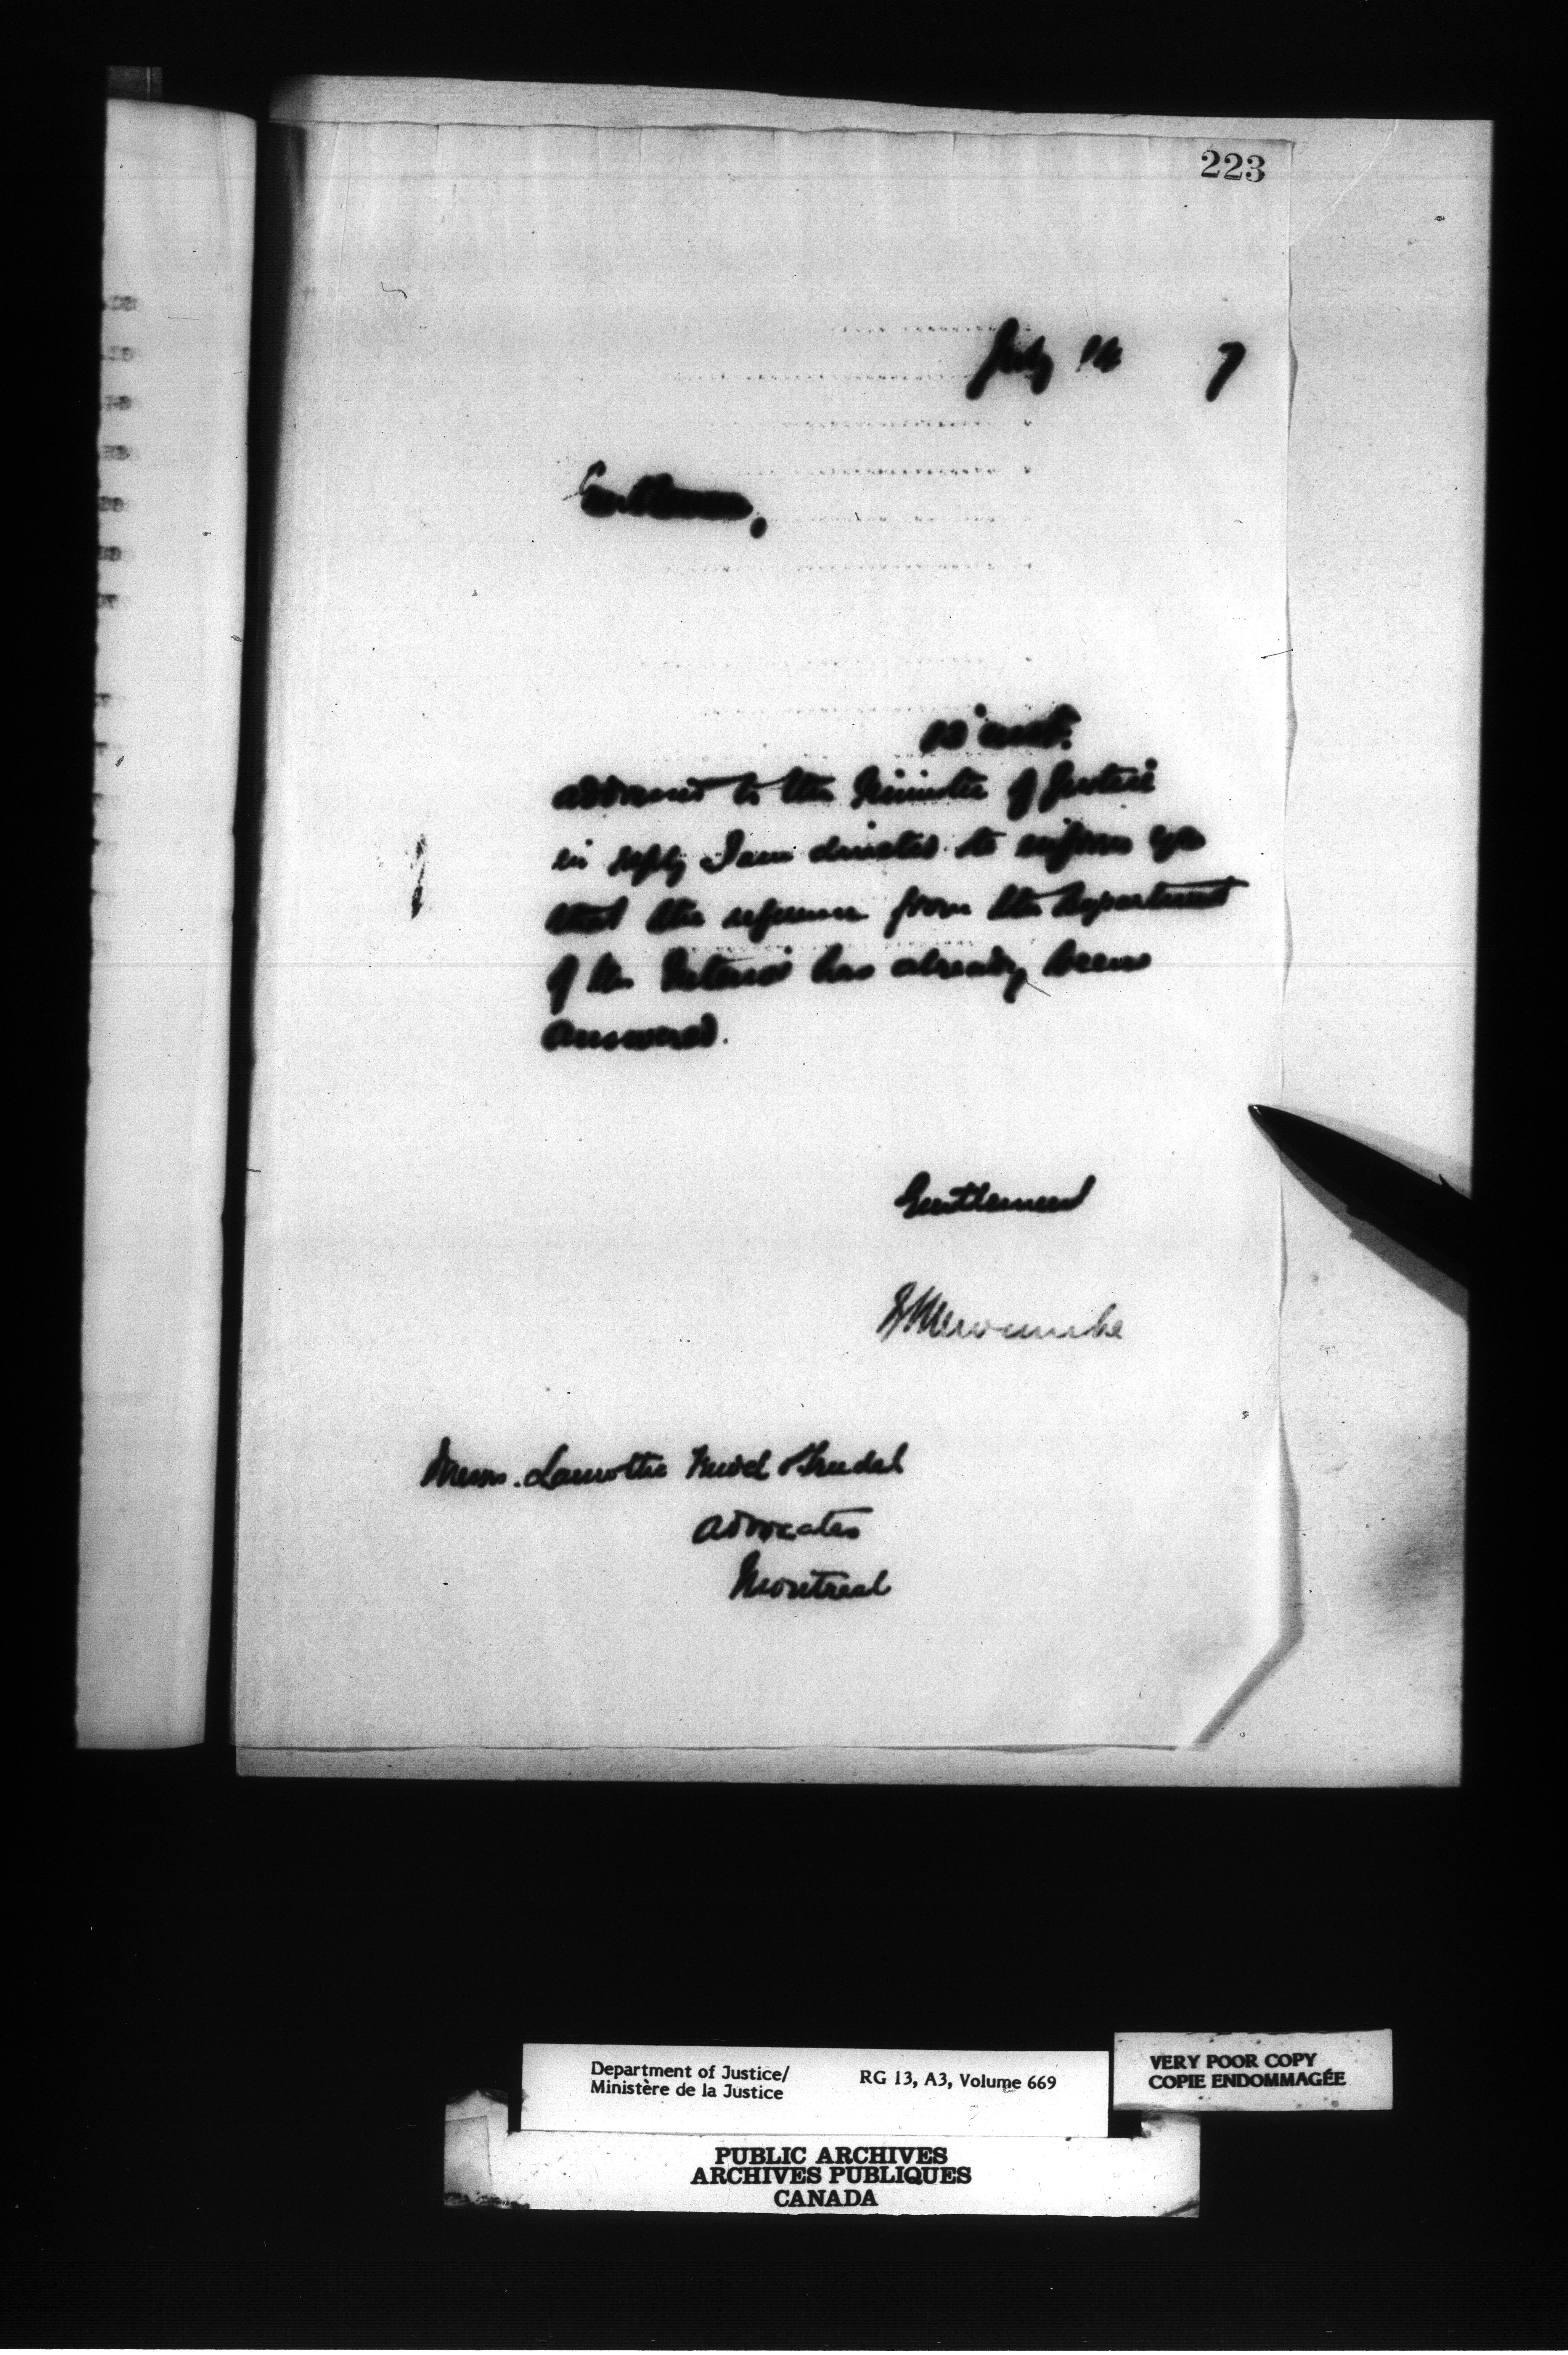 223
July 14 7
Gentlemen,
13 inst.
addressed to the Minister of Justice
in reply I am directed to inform you
that the reference from the Department
of the Interior has already been
answered.
Gentlemen
E L Newcombe
Messrs. Lamothe & Trudel
Advocates
Montreal
Department of Justice/
Ministère de la Justice
RG 13, A3, Volume 669
VERY POOR COPY
COPIE ENDOMMAGÉE
PUBLIC ARCHIVES
ARCHIVES PUBLIQUES
CANADA